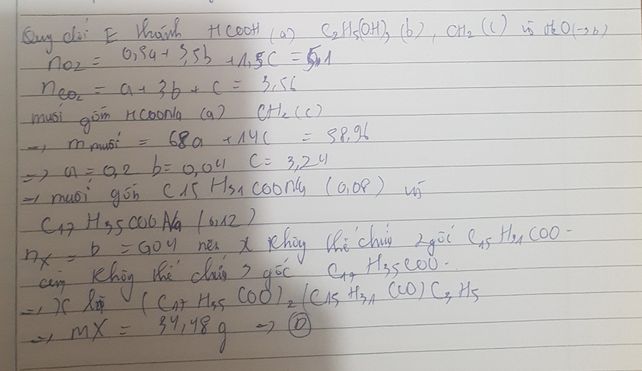 Quy đổi E thành HCOOH (a) C3H5(OH)3 (b), CH2 (c) và H2O(-3b)
nO2 = 0,5a + 3,5b + 1,5c = 5,1
nCO2 = a + 3b + c = 3,56
muối gồm HCOONa (a) CH2 (c)
=> m muối = 68a + 14c = 58,96
=> a = 0,2 b = 0,04 c = 3,24
=> muối gồm C15H31COONa (0,08) và
C17H35COONa (0,12)
nX = b = 0,04 nên X không thể chứa 2 gốc C15H31COO-
cũng không thể chứa 3 gốc C17H35COO-
=> X là (C17H35COO)2(C15H31COO)C3H5
=> mX = 34,48 g => D